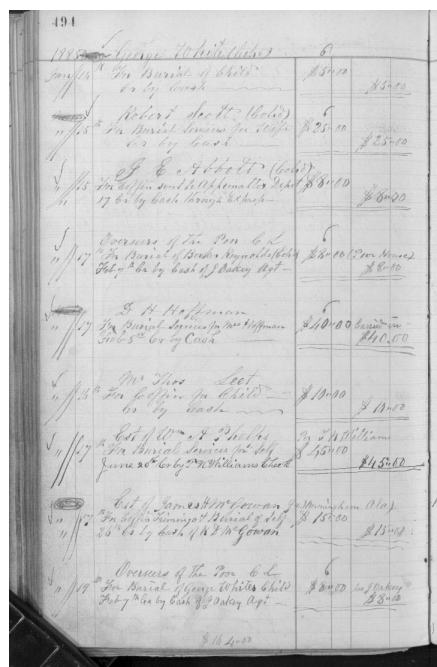 494
1885 George White (Cold) 6
Jany 14 For Burial of Child $5.00
Cr by Cash $5.00
Robert Scott (Cold) 6
" 15 For Burial Services for Self $25.00
Cr by Cash $25.00
J E Abbott (Cold)
" 15 For Coffin sent to Appomattox Depot $8.00
" 17 Cr by Cash through Express $8.00
Overseers of the Poor C L 6
" 17 For Burial of Reynolds (Cold) $8.00 (Poor House)
Feb 7th Cr by Cash of J Oakey Agt $8.00
D H Hoffman 6
" 17 For Burial Services for Mrs Hoffman $40.00
Feb 5th Cr by Cash $40.00
Mr Thos Leet
For Coffin for Child $10.00
Cr by Cash $10.00
Est of Wm A Phelps By T N Williams
" 17 For Burial Services for Self $45.00
June 20th Cr by T N Williams Check $45.00
Est of James H McGowan (Birmingham Ala)
For Coffin Trimings & Burial of Self $15.00
26th Cr by Cash of McGowan $15.00
Overseers of the Poor C L 6
" 19 For Burial of George White's Child $8.00
Feb 7th Cr by Cash of J Oakey Agt $8.00
$164.00